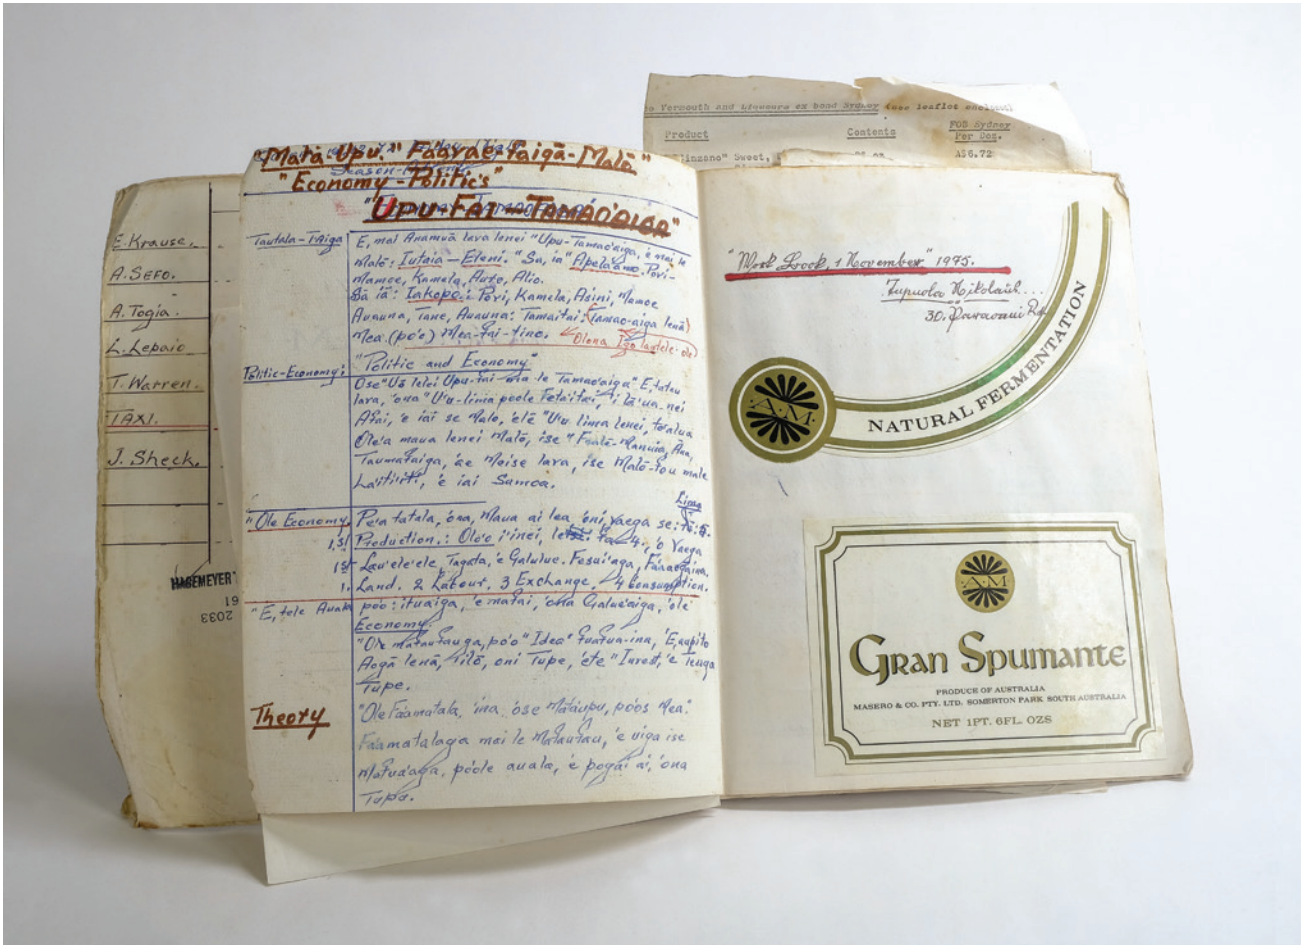 E. Krause.
A. Sefo.
A. Togia.
L. Lepaio
T. Warren.
TAXI.
J. Sheck.
HAGEMEYER
2033
61
Matā Upu." Faavae-Faigā-Malō"
"Economy-Politic's"
"UPU-FAI-TAMAO'AIGA"
Tautala-Faiga
E, mai Anamuā lava lenei "Upu-Tamao'aiga, e mai le
Malō: Iutaia - Eleni. "Sa, ia" Apela'amo. Povi-
Mamoe, Kamela, Auro, Alio.
Sā iā: Iakopo: Povi, Kamela, Asini, Mamoe
Auauna, Tane, Auauna: Tamaitai: (Tamao-aiga lenā)
Mea (po'o) Mea-fai-tino.
"Politic and Economy"
Politic-Economy:
Ose "Uō lelei Upu-fai ma le Tamao'aiga" E, tatau
lava, 'ona "U'u-lima poole
Afai, 'e iai se Malo, 'elē "U'u lima lenei,
Ole'a maua lenei Malō, ise "Faalē-Manuia, Ana,
Taumafaiga, 'ae Meise lava, ise Malō-tou male
La'itiiti, 'e iai Samoa.
"Ole Economy
Pe'a tatala, 'ona, Maua ai lea 'oni Vaega se: 5.
1,st
Production.: Olo'o i'inei, 4. 'o Vaega
1st
Lau'ele'ele, Tagata, 'e Galulue. Fesui'aga,
1.
Land. 2 Labour, 3 Exchange, 4 Consumption.
"E, tele Auala
po'o: ituaiga, 'e mafai, 'ona Galue'aiga, 'ole
Economy.
"Ole mafaufauga, po'o "Idea"
Aogā lenā, oni Tupe, 'ete "Invest, 'e
Tupe.
Theory
"Ole Faamatala, 'ina 'ose Matāupu, po'os Mea:
Faamatalaga mai le Mafaufau, 'e uiga ise
Mafua'aga, po'ole auala, e pogai ai, 'ona
Tupu.
Vermouth and Liqueurs ex bond Sydney (see leaflet enclosed)
Product Contents FOB Sydney
Per Doz.
"Cinzano" Sweet, A$6.72
"Work Book, 1 November" 1975.
Tupuola Nikolaii...
30.
NATURAL FERMENTATION
A.M.
A.M.
GRAN SPUMANTE
PRODUCE OF AUSTRALIA
MASERO & CO. PTY. LTD. SOMERTON PARK SOUTH AUSTRALIA
NET 1PT. 6FL. OZS